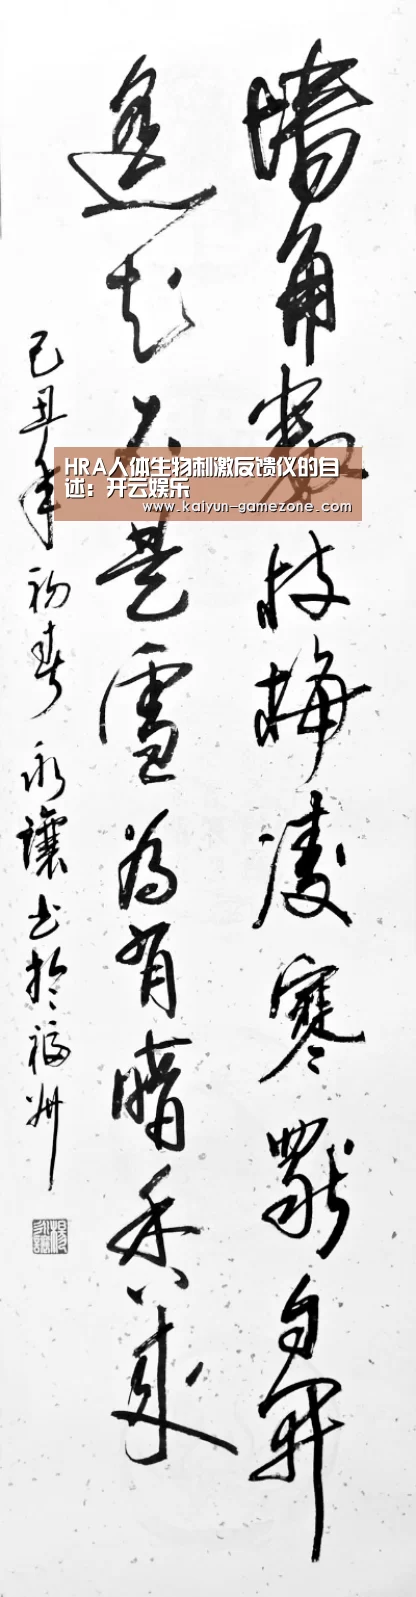 墙角數枝梅凌寒獨自開
遥知不是雪為有暗香來
己丑年初春永讓书於福州
HRA人体生物刺激反馈仪的自
述：开云娱乐
www.kaiyun-gamezone.com